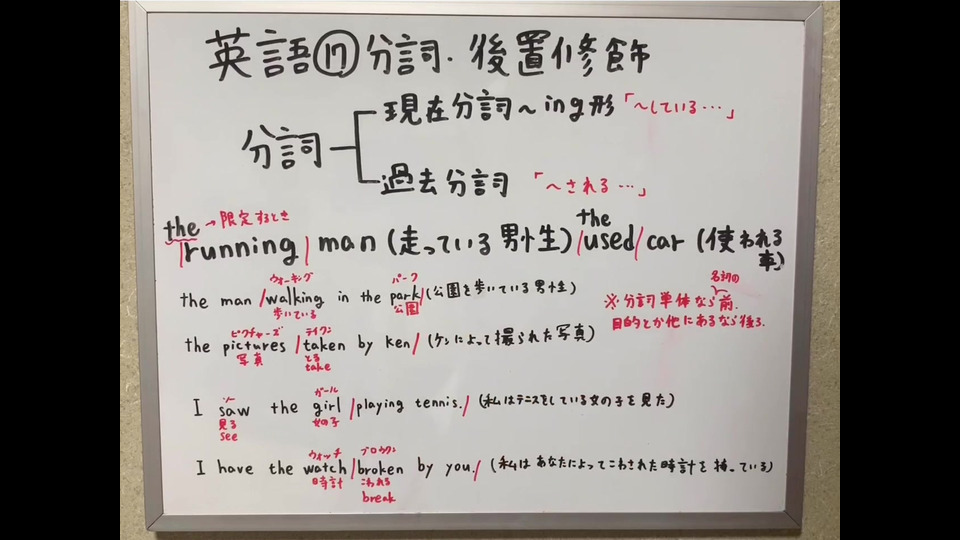 英語⑰分詞・後置修飾
分詞
現在分詞〜ing形「〜している…」
過去分詞「〜される…」
the→限定するとき
the
/running/ man (走っている男性) /used/ car (使われる車)
ウォーキング パーク
the man /walking in the park/ (公園を歩いている男性)
歩いている 公園
名詞の
※分詞単体なら前.
目的とか他にあるなら後ろ.
ピクチャーズ テイクン
the pictures /taken by ken/ (ケンによって撮られた写真)
写真 とる
take
ソー ガール
I saw the girl /playing tennis./ (私はテニスをしている女の子を見た)
見る 女の子
see
ウォッチ ブロウクン
I have the watch /broken by you./ (私はあなたによってこわされた時計を持っている)
時計 こわれる
break